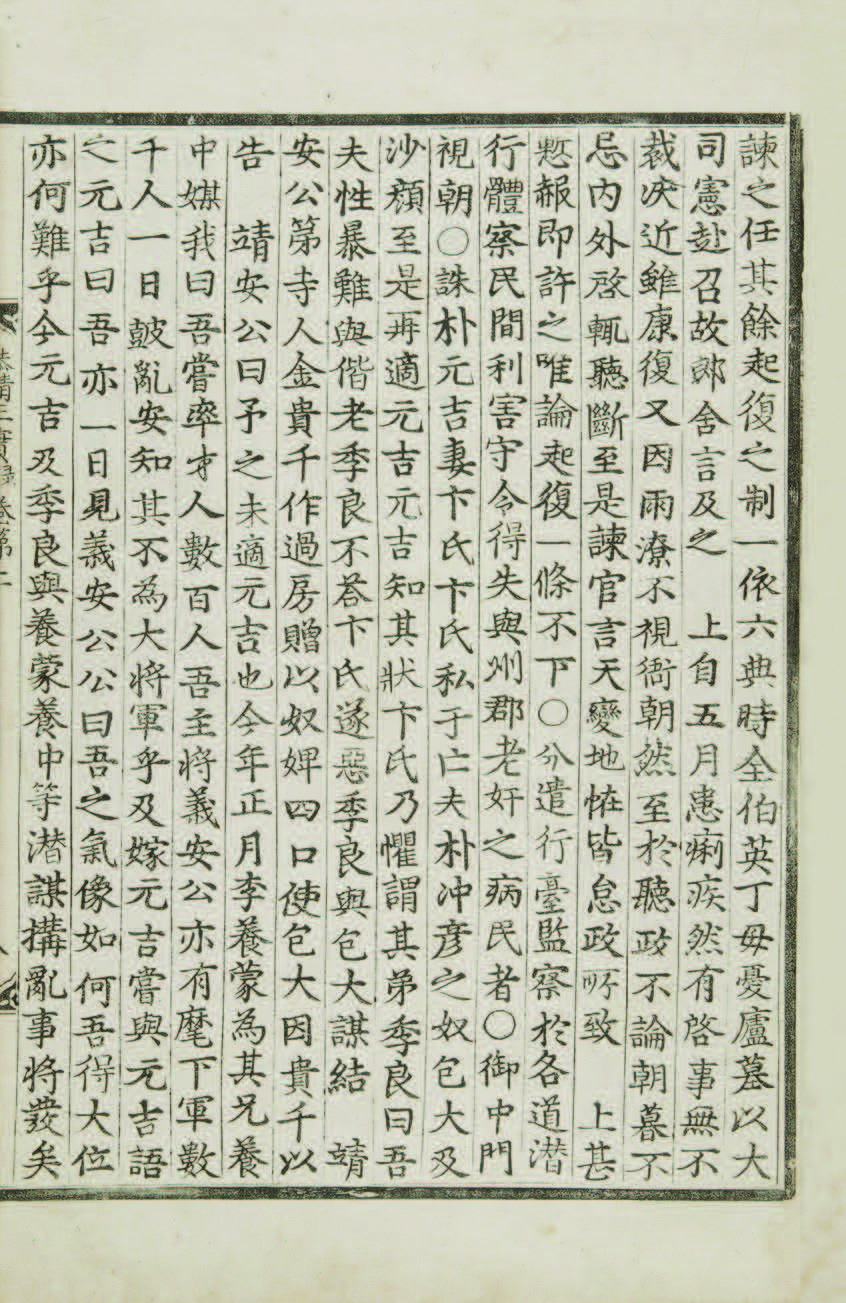 諫之任其餘起復之制一依六典時全伯英丁母憂廬墓以大
司憲赴召故郞舍言及之　上自五月患痢疾然有啓事無不
裁決近雖康復又因雨潦不視衙朝然至於聽政不論朝暮不
忌內外啓輒聽斷至是諫官言天變地恠皆怠政所致　上甚
慙赧即許之唯論起復一條不下○分遣行臺監察於各道潜
行體察民間利害守令得失與州郡老奸之病民者○御中門
視朝○誅朴元吉妻卞氏卞氏私于亡夫朴冲彦之奴包大及
沙顔至是再適元吉元吉知其狀卞氏乃懼謂其弟季良曰吾
夫性暴難與偕老季良不荅卞氏遂惡季良與包大謀結　靖
安公第寺人金貴千作過房贈以奴婢四口使包大因貴千以
告　靖安公曰予之未適元吉也今年正月李養蒙為其兄養
中媒我曰吾嘗率才人數百人吾主將義安公亦有麾下軍數
千人一日皷亂安知其不為大將軍乎及嫁元吉嘗與元吉語
之元吉曰吾亦一日見義安公公曰吾之氣像如何吾得大位
亦何難乎今元吉及季良與養蒙養中等潜謀搆亂事將發矣
恭靖王實錄卷第二
八